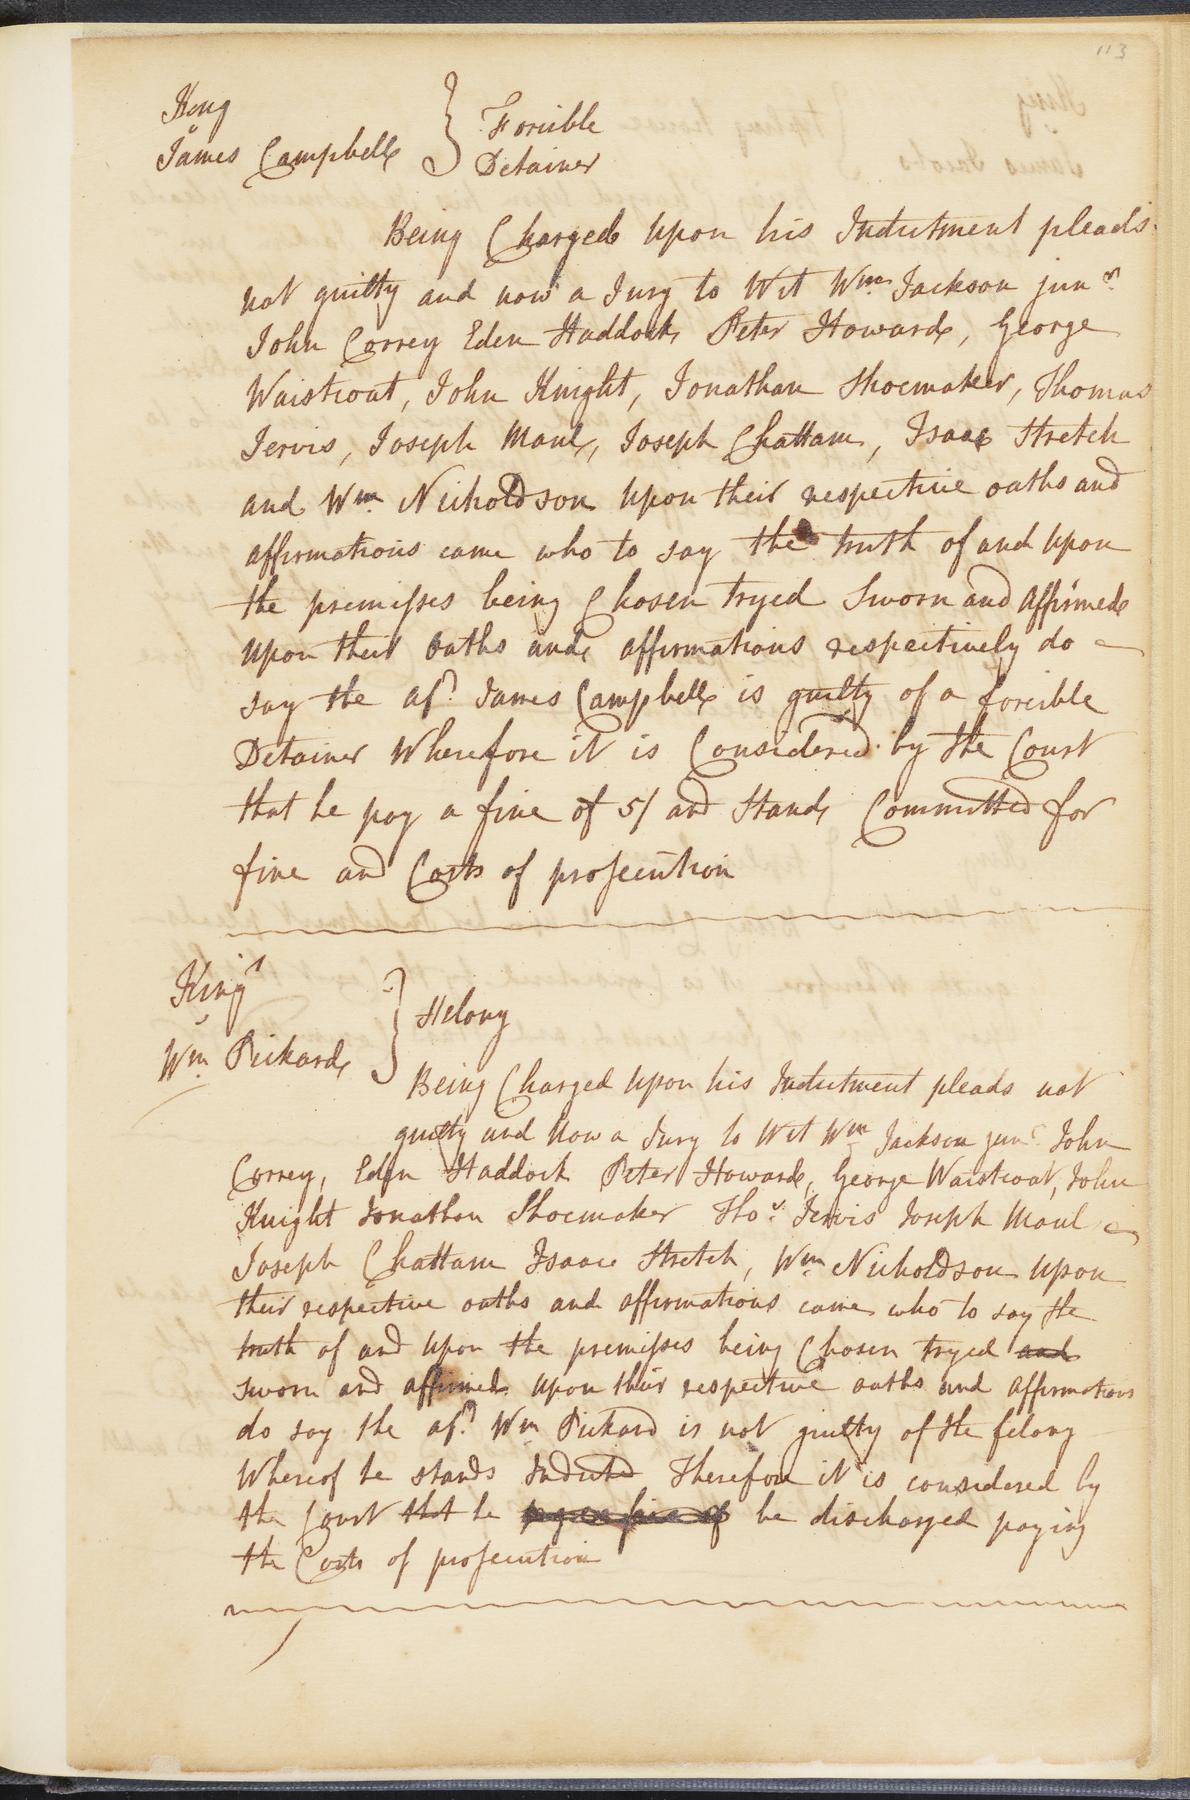 113
King
v
James Campbell } Forcible
Detainer
Being Charged upon his Indictment pleads
not guilty and now a Jury to Wit Wm. Jackson junr.
John Correy Eden Haddock Peter Howard, George
Waistcoat, John Knight, Jonathan Shoemaker, Thomas
Jervis, Joseph Maul, Joseph Chattam, Isaac Stretch
and Wm. Nicholdson upon their respective oaths and
affirmations came who to say the truth of and upon
the premisses being Chosen tryed Sworn and Affirmed
upon their Oaths and affirmations respectively do
say the afd. James Campbell is guilty of a forcible
Detainer Wherefore it is Considered by the Court
that he pay a fine of 5/ and Stand Committed for
fine and Costs of prosecution
King
v
Wm Pickard } Felony
Being Charged upon his Indictment pleads not
guilty and now a Jury to Wit Wm Jackson junr. John
Correy, Eden Haddock Peter Howard, George Waistcoat, John
Knight Jonathan Shoemaker Thos. Jervis Joseph Maul
Joseph Chattam Isaac Stretch, Wm Nicholdson upon
their respective oaths and affirmations came who to say the
truth of and upon the premisses being Chosen tryed and
sworn and affirmed upon their respective oaths and affirmations
do say the afd. Wm Pickard is not guilty of the felony
Whereof he stands Indicted Therefore it is considered by
the Court that he be discharged paying
the Costs of prosecution